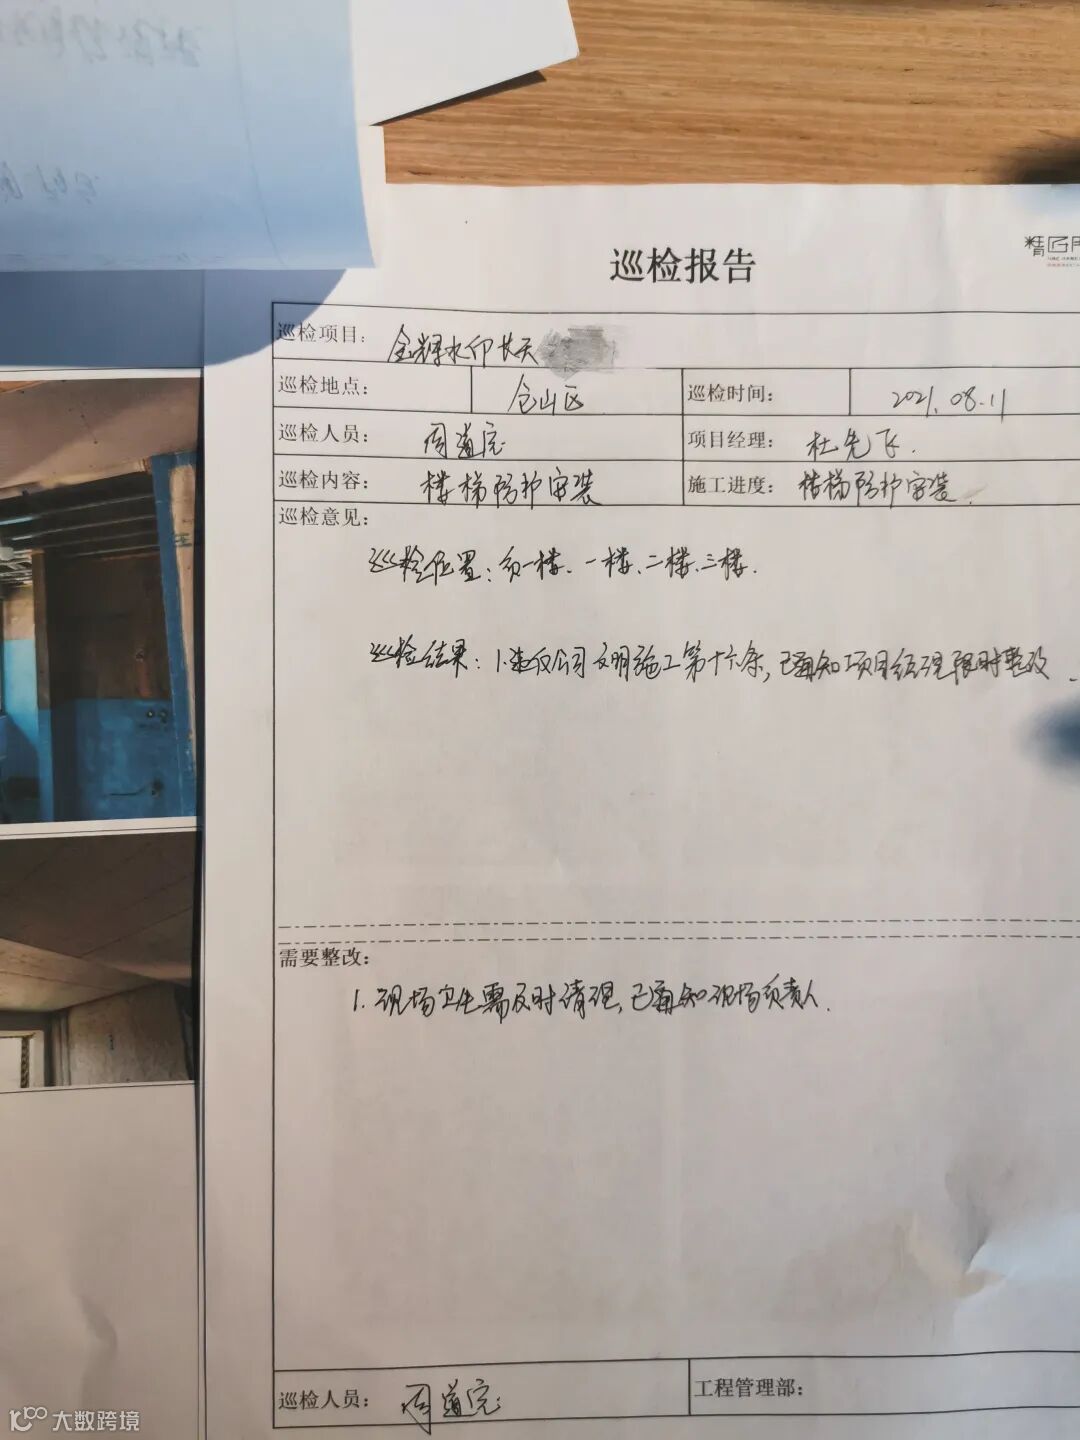 巡检报告
精匠
巡检项目： 金辉水印长天
巡检地点： 仓山区 巡检时间： 2021.08.11
巡检人员： 周道完 项目经理： 杜先飞.
巡检内容： 楼梯防护安装 施工进度： 楼梯防护安装.
巡检意见：
巡检位置：负一楼、一楼、二楼、三楼.
巡检结果：1.违反公司文明施工第十六条，已通知项目经理限时整改.
需要整改：
1.现场卫生需及时清理，已通知现场负责人.
巡检人员： 周道完 工程管理部：
大数跨境